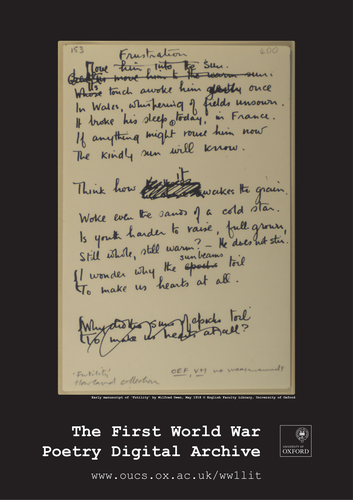 153
400
Frustration
Move him into the sun.
Gently move him to the warm sun.
Its touch awoke him gently once
In Wales, whispering of fields unsown.
It broke his sleep today, in France.
If anything might rouse him now
The kindly sun will know.
Think how it wakes the grain.
Woke even the sands of a cold star.
Is youth harder to raise, full grown,
Still whole, still warm? – He does not stir.
I wonder why the sunbeams toil
To make us hearts at all.
Why did the suns of epochs toil
To make us hearts at all?
'Futility'
Harwood collection
OEF, VII no measurements
Early manuscript of 'Futility' by Wilfred Owen, May 1918 © English Faculty Library, University of Oxford
The First World War
Poetry Digital Archive
UNIVERSITY OF
OXFORD
www.oucs.ox.ac.uk/ww1lit